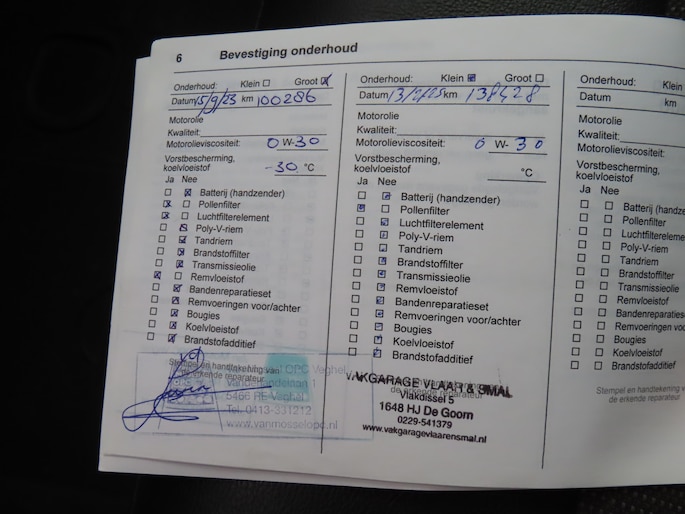 6 Bevestiging onderhoud
Onderhoud: Klein Groot
Datum 15/9/23 km 100286
Motorolie
Kwaliteit:
Motorolieviscositeit: 0 W-30
Vorstbescherming,
koelvloeistof -30 °C
Ja Nee
Batterij (handzender)
Pollenfilter
Luchtfilterelement
Poly-V-riem
Tandriem
Brandstoffilter
Transmissieolie
Remvloeistof
Bandenreparatieset
Remvoeringen voor/achter
Bougies
Koelvloeistof
Brandstofadditief
Stempel en handtekening van
de erkende reparateur
OPC Veghel
5466 RE Veghel
Tel. 0413-331212
www.vanmosselopc.nl
Onderhoud: Klein Groot
Datum 13/2/25 km 138428
Motorolie
Kwaliteit:
Motorolieviscositeit: 0 W- 30
Vorstbescherming,
koelvloeistof °C
Ja Nee
Batterij (handzender)
Pollenfilter
Luchtfilterelement
Poly-V-riem
Tandriem
Brandstoffilter
Transmissieolie
Remvloeistof
Bandenreparatieset
Remvoeringen voor/achter
Bougies
Koelvloeistof
Brandstofadditief
VAKGARAGE VLAAR & SMAL
de erkende reparateur
Vlakdissel 5
1648 HJ De Goorn
0229-541379
www.vakgaragevlaarensmal.nl
Onderhoud: Klein
Datum km
Motorolie
Kwaliteit:
Motorolieviscositeit:
Vorstbescherming,
koelvloeistof
Ja Nee
Batterij (handze
Pollenfilter
Luchtfilterelem
Poly-V-riem
Tandriem
Brandstoffilter
Transmissieolie
Remvloeistof
Bandenreparaties
Remvoeringen voo
Bougies
Koelvloeistof
Brandstofadditief
Stempel en handtekening v
de erkende reparateur